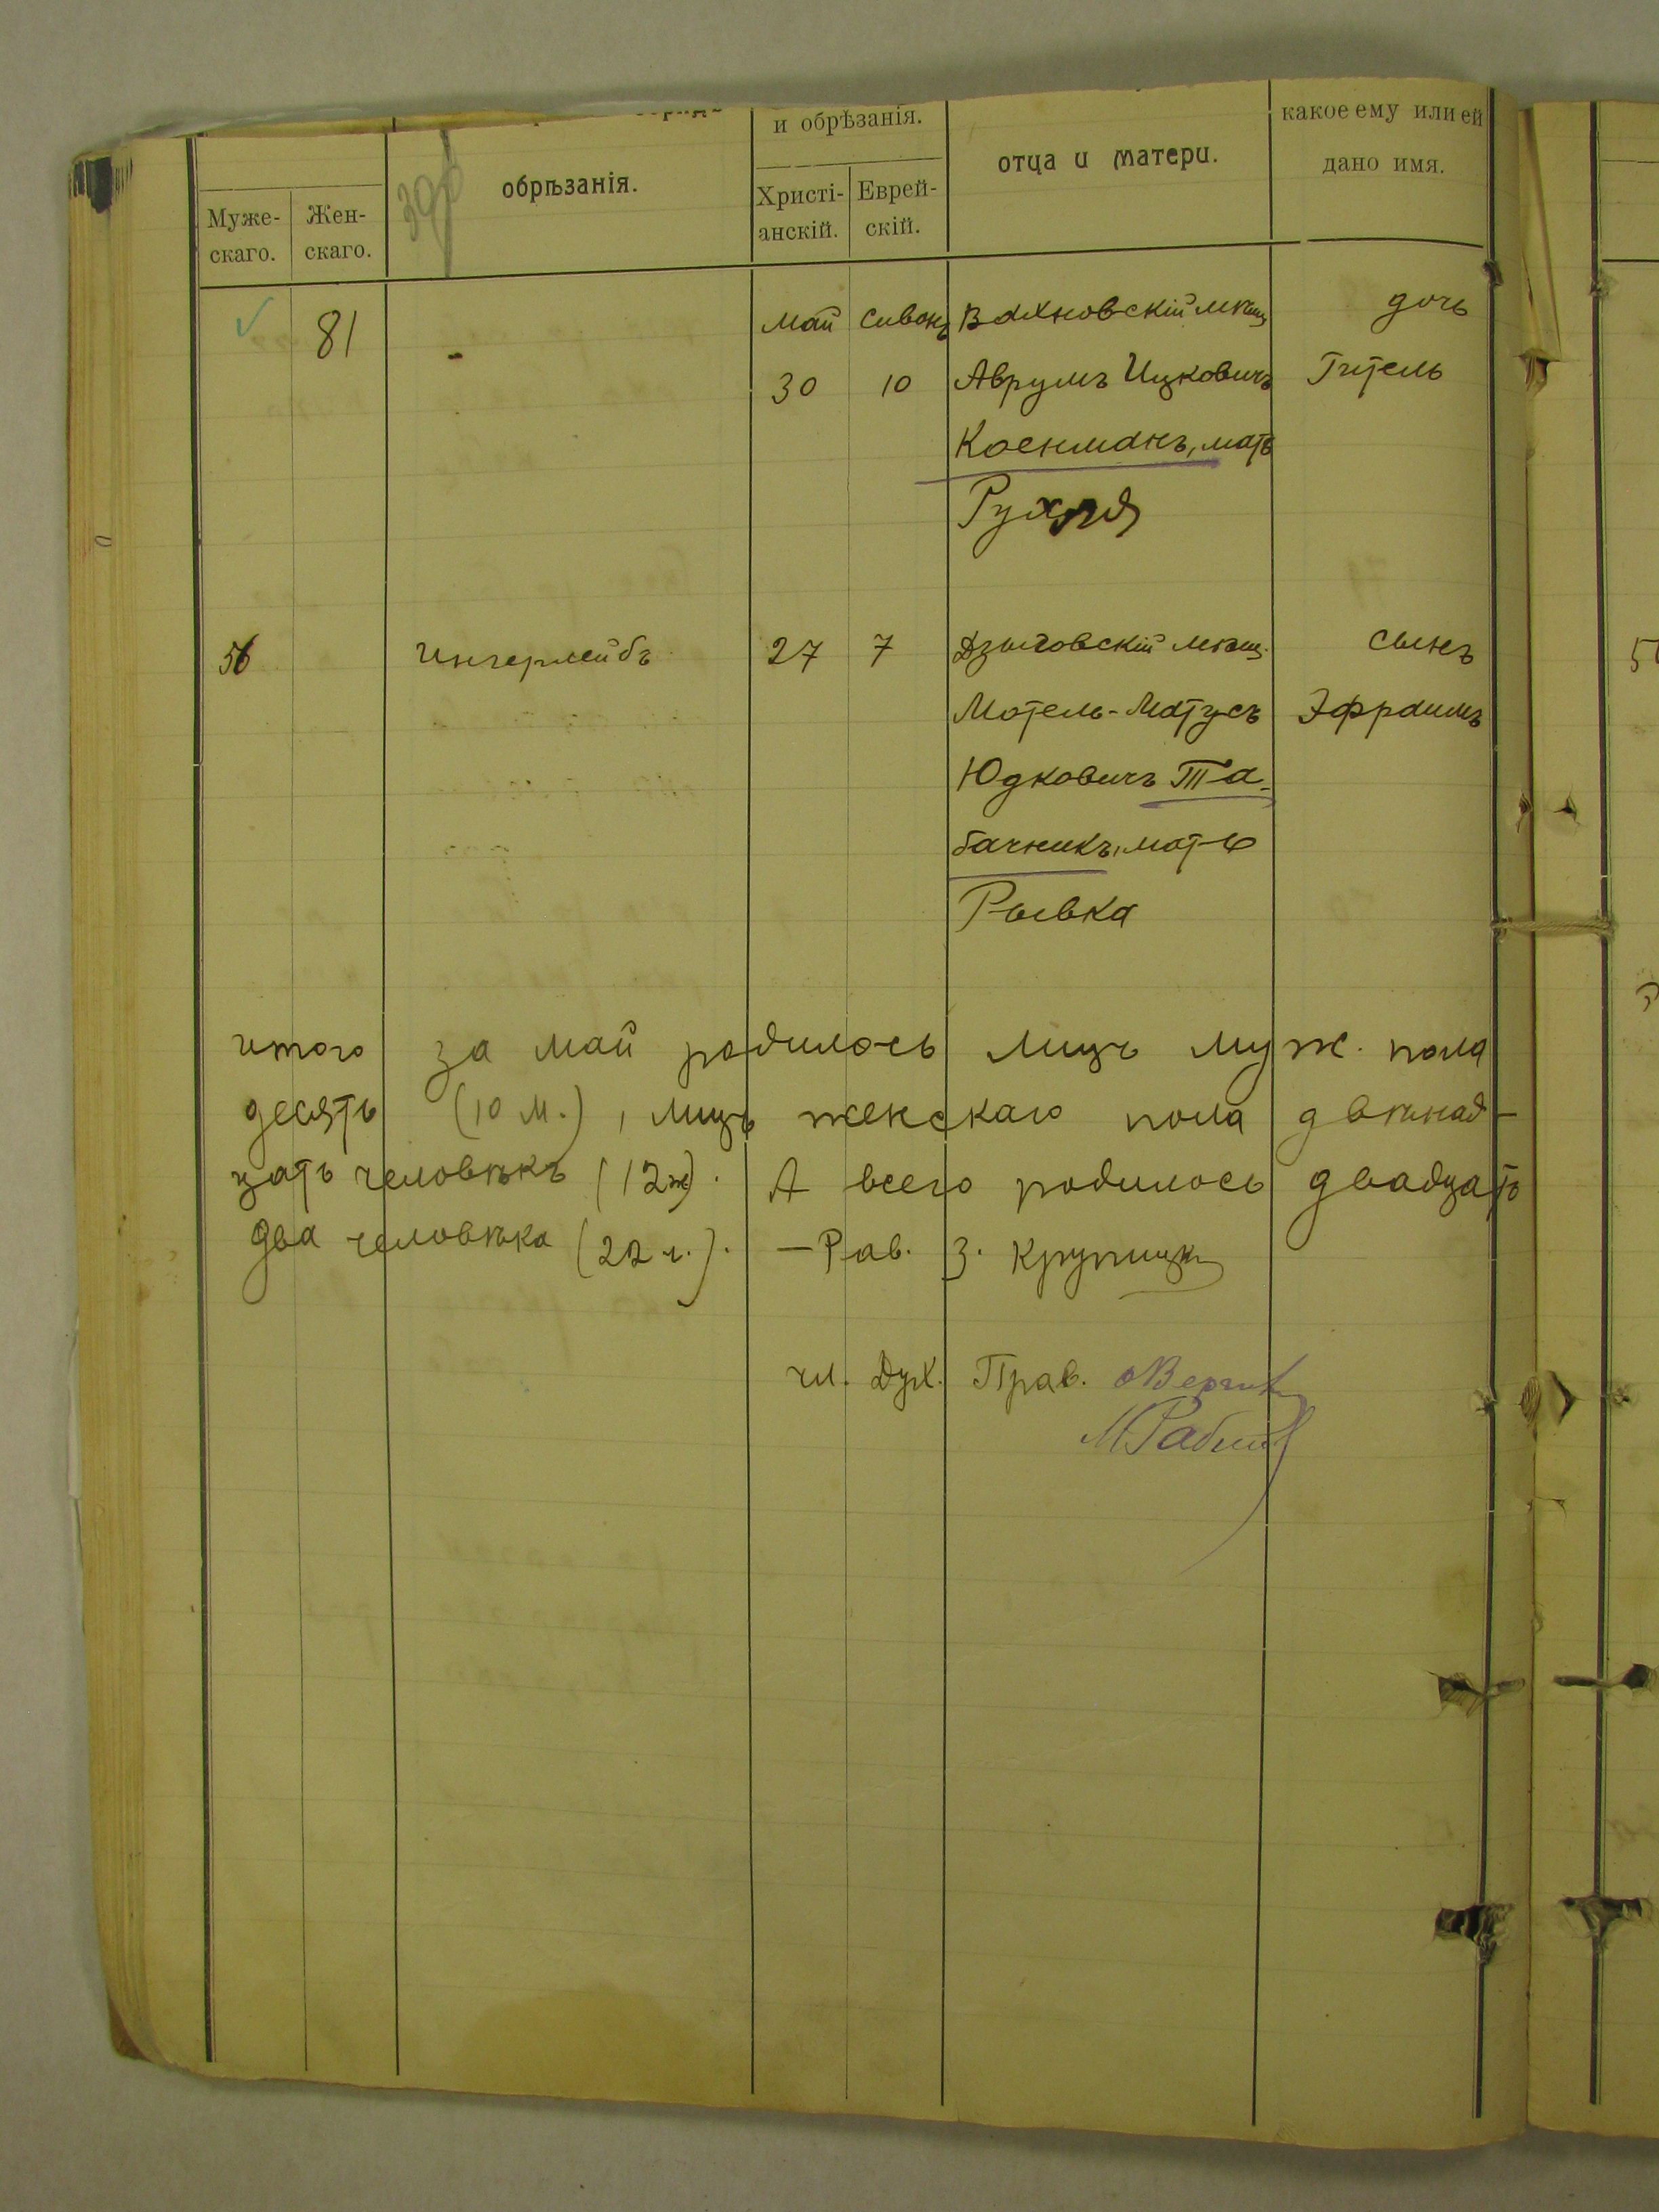 и обрѣзанія.
какое ему или ей
обрѣзанія.
отца и матери.
дано имя.
Муже-
скаго.
Жен-
скаго.
Христі-
анскій.
Еврей-
скій.
81 - Май Сивонъ Вахновскій мѣщ дочь
30 10 Аврумъ Ицковичъ Гитель
Коенманъ, мать
Рухля
56 Ингерлейбъ 27 7 Дзыговскій мѣщ. сынъ
Мотель-Матусъ Эфраимъ
Юдковичъ Та-
бачникъ, мать
Рывка
итого за май родилось лицъ муж. пола
десять (10 м.), лицъ женскаго пола двѣнад-
цать человѣкъ (12 ж). А всего родилось двадцать
два человѣка (22 ч.). — Рав. З. Крупицкій
чл. Дух. Прав.